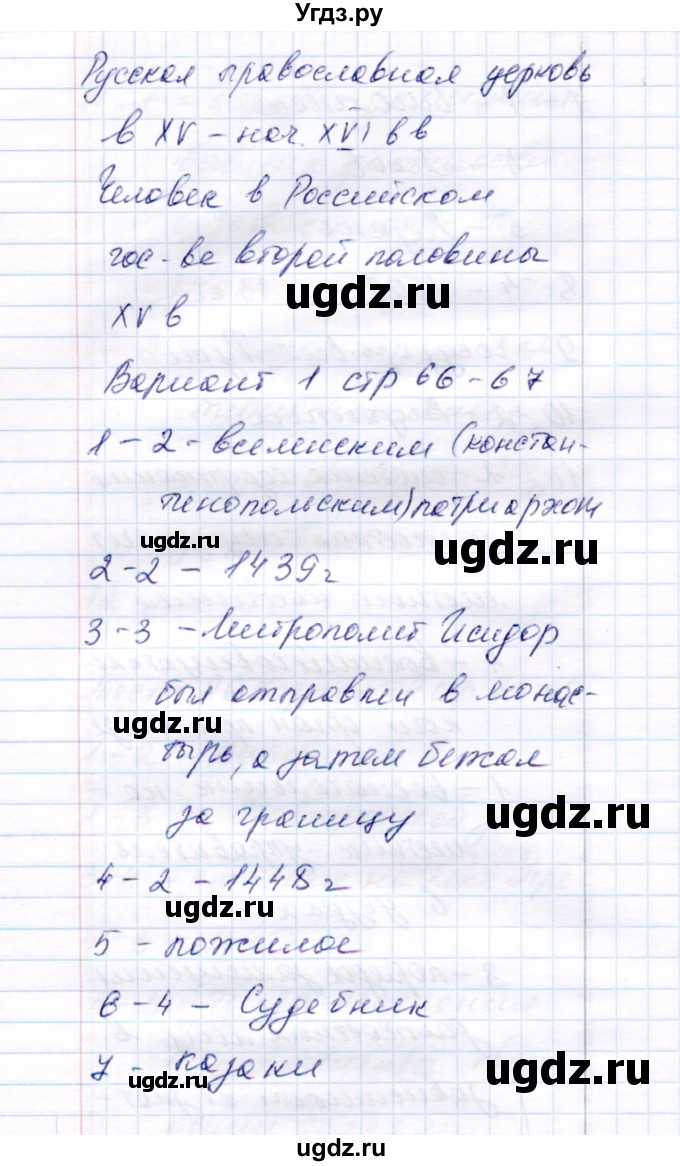 Угдз.ру
Русская православная церковь
в XV – нач. XVI вв
Человек в Российском
гос-ве второй половины
ugdz.ru
XV в
Вариант 1 стр 66-67
1 – 2 – вселенским (констан-
тинопольским) патриархом
ugdz.ru
ugdz.ru
2-2 – 1439 г
3-3 – Митрополит Исидор
был отправлен в монас-
ugdz.ru
тырь, а затем бежал
за границу
ugdz.ru
4-2 – 1448 г
ugdz.ru
5 – пожилое
6-4 – Судебник
7 – казаки
ugdz.ru
ugdz.ru
ugdz.ru